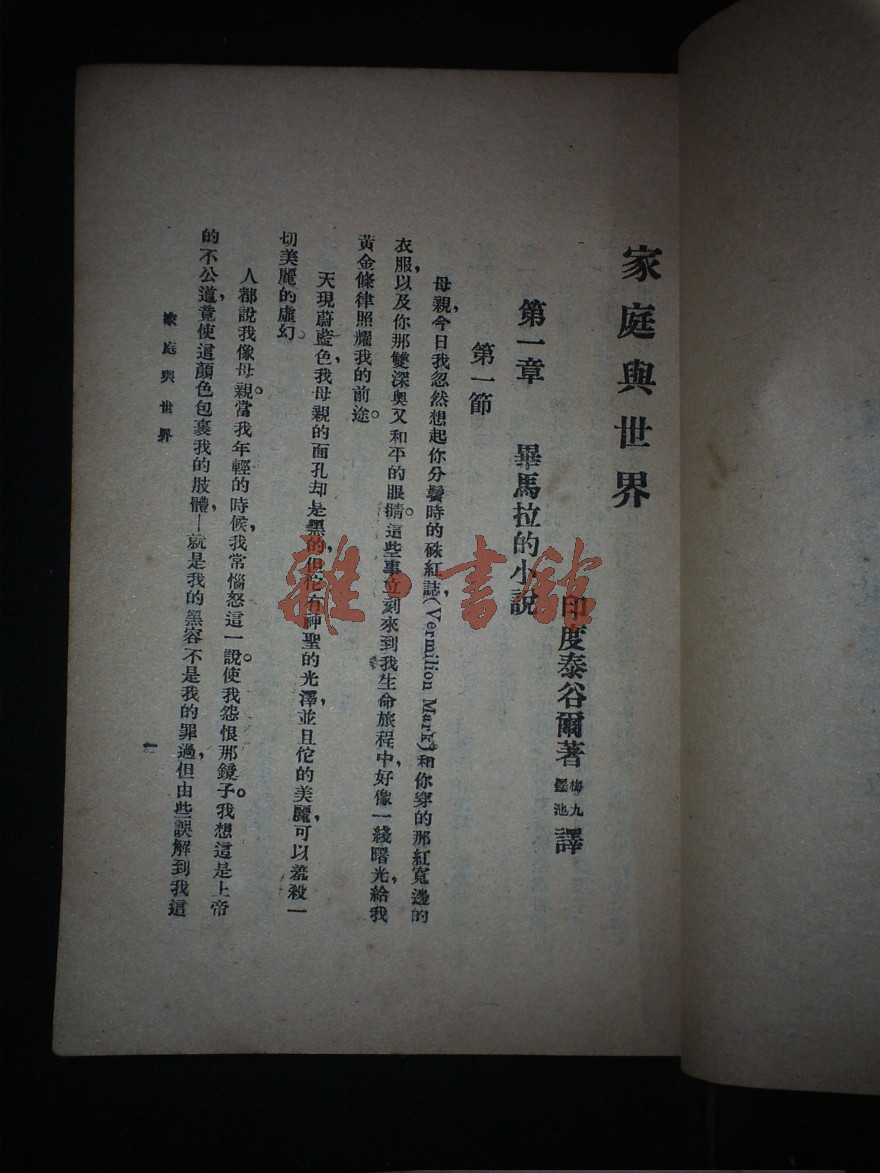 家庭與世界
印度泰谷爾著 梅九 墨池 譯
第一章 畢馬拉的小説
第一節
母親,今日我忽然想起你分鬢時的硃紅誌(Vermilion Mark)和你穿的那紅寬邊的
衣服,以及你那雙深奧又和平的眼睛。這些事立刻來到我生命旅程中,好像一綫曙光給我
黃金條律照耀我的前途。
天現蔚藍色,我母親的面孔却是黑的,但佗有神聖的光澤,並且佗的美麗,可以羞殺一
切美麗的虛幻。
人都說我像母親。當我年輕的時候,我常惱怒這一說。使我怨恨那鏡子。我想這是上帝
的不公道,竟使這顏色包裹我的肢體—就是我的黑容不是我的罪過,但由些誤解到我這
家庭與世界
一
雜·書館